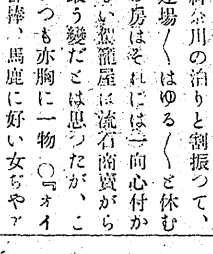 神奈川の泊りと割振つて、
場〱はゆる〱と休む
房はそれには一向心付か
い駕籠屋は流石商賣がら
う變だとは思つたが、こ
つも亦胸に一物 〇『オイ
棒、馬鹿に好い女ぢやア